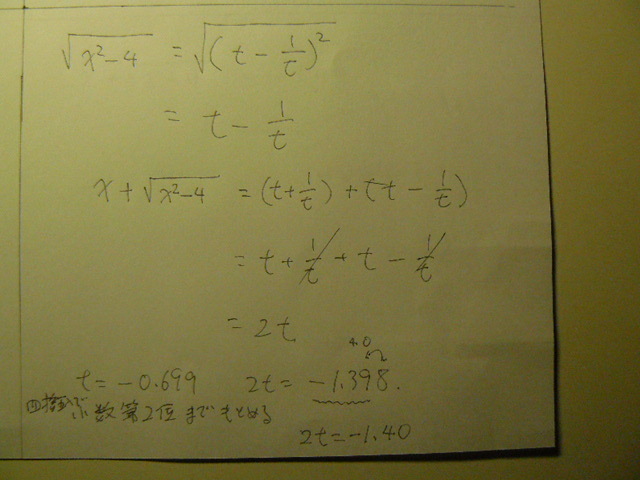 √(x²-4) = √((t - 1/t)²)
= t - 1/t
x + √(x²-4) = (t + 1/t) + (t - 1/t)
= t + 1/t + t - 1/t
= 2t
4.0
t = -0.699 2t = -1.398.
数第2位までもとめる
2t = -1.40